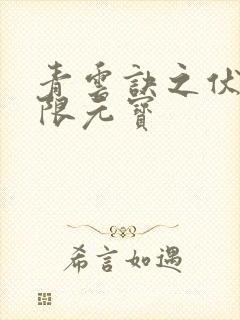 青雲訣之伏
限元寶
希言如遇